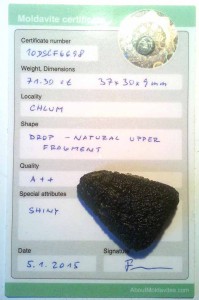 Moldavite certificate
Certificate number
Weight, Dimensions
71.30 ct 37x30x9mm
Locality
CHLUM
Shape
DROP - NATURAL UPPER
FRAGMENT
Quality
A++
Special attributes
SHINY
Date
Signature
5.1.2015
AboutMoldavites.com